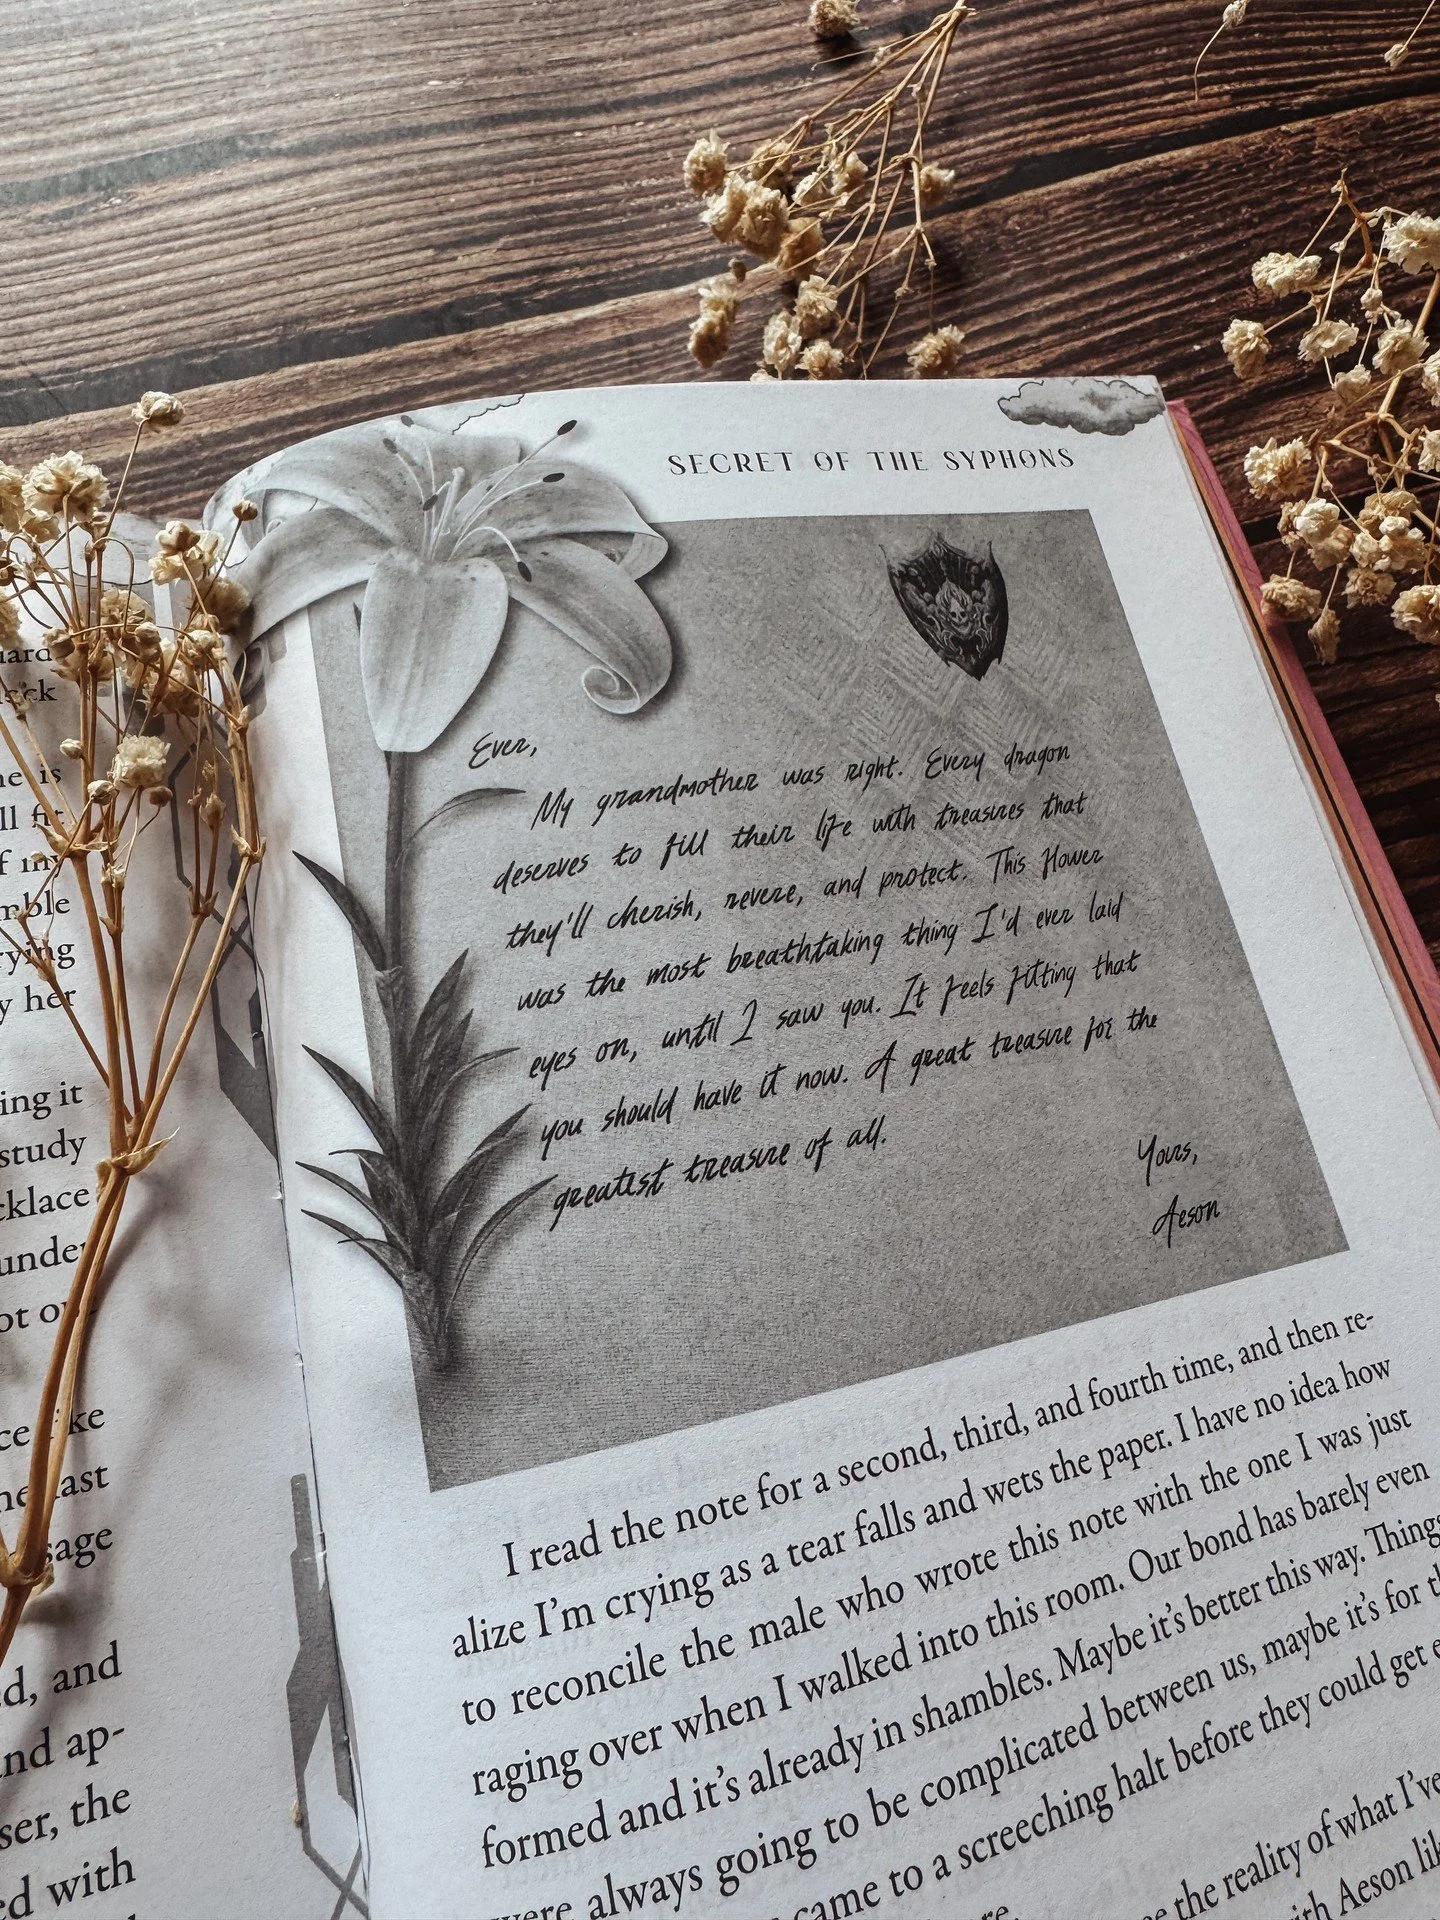 SECRET OF THE SYPHONS
Ever,
My grandmother was right. Every dragon
deserves to fill their life with treasures that
they'll cherish, revere, and protect. This flower
was the most breathtaking thing I'd ever laid
eyes on, until I saw you. It feels fitting that
you should have it now. A great treasure for the
greatest treasure of all.
Yours,
Aeson
I read the note for a second, third, and fourth time, and then re-
alize I'm crying as a tear falls and wets the paper. I have no idea how
to reconcile the male who wrote this note with the one I was just
raging over when I walked into this room. Our bond has barely even
formed and it's already in shambles. Maybe it's better this way. Things
were always going to be complicated between us, maybe it's for
came to a screeching halt before they could get
the reality of what I've
with Aeson
is
her
ing it
study
under
and
and ap-
the
with